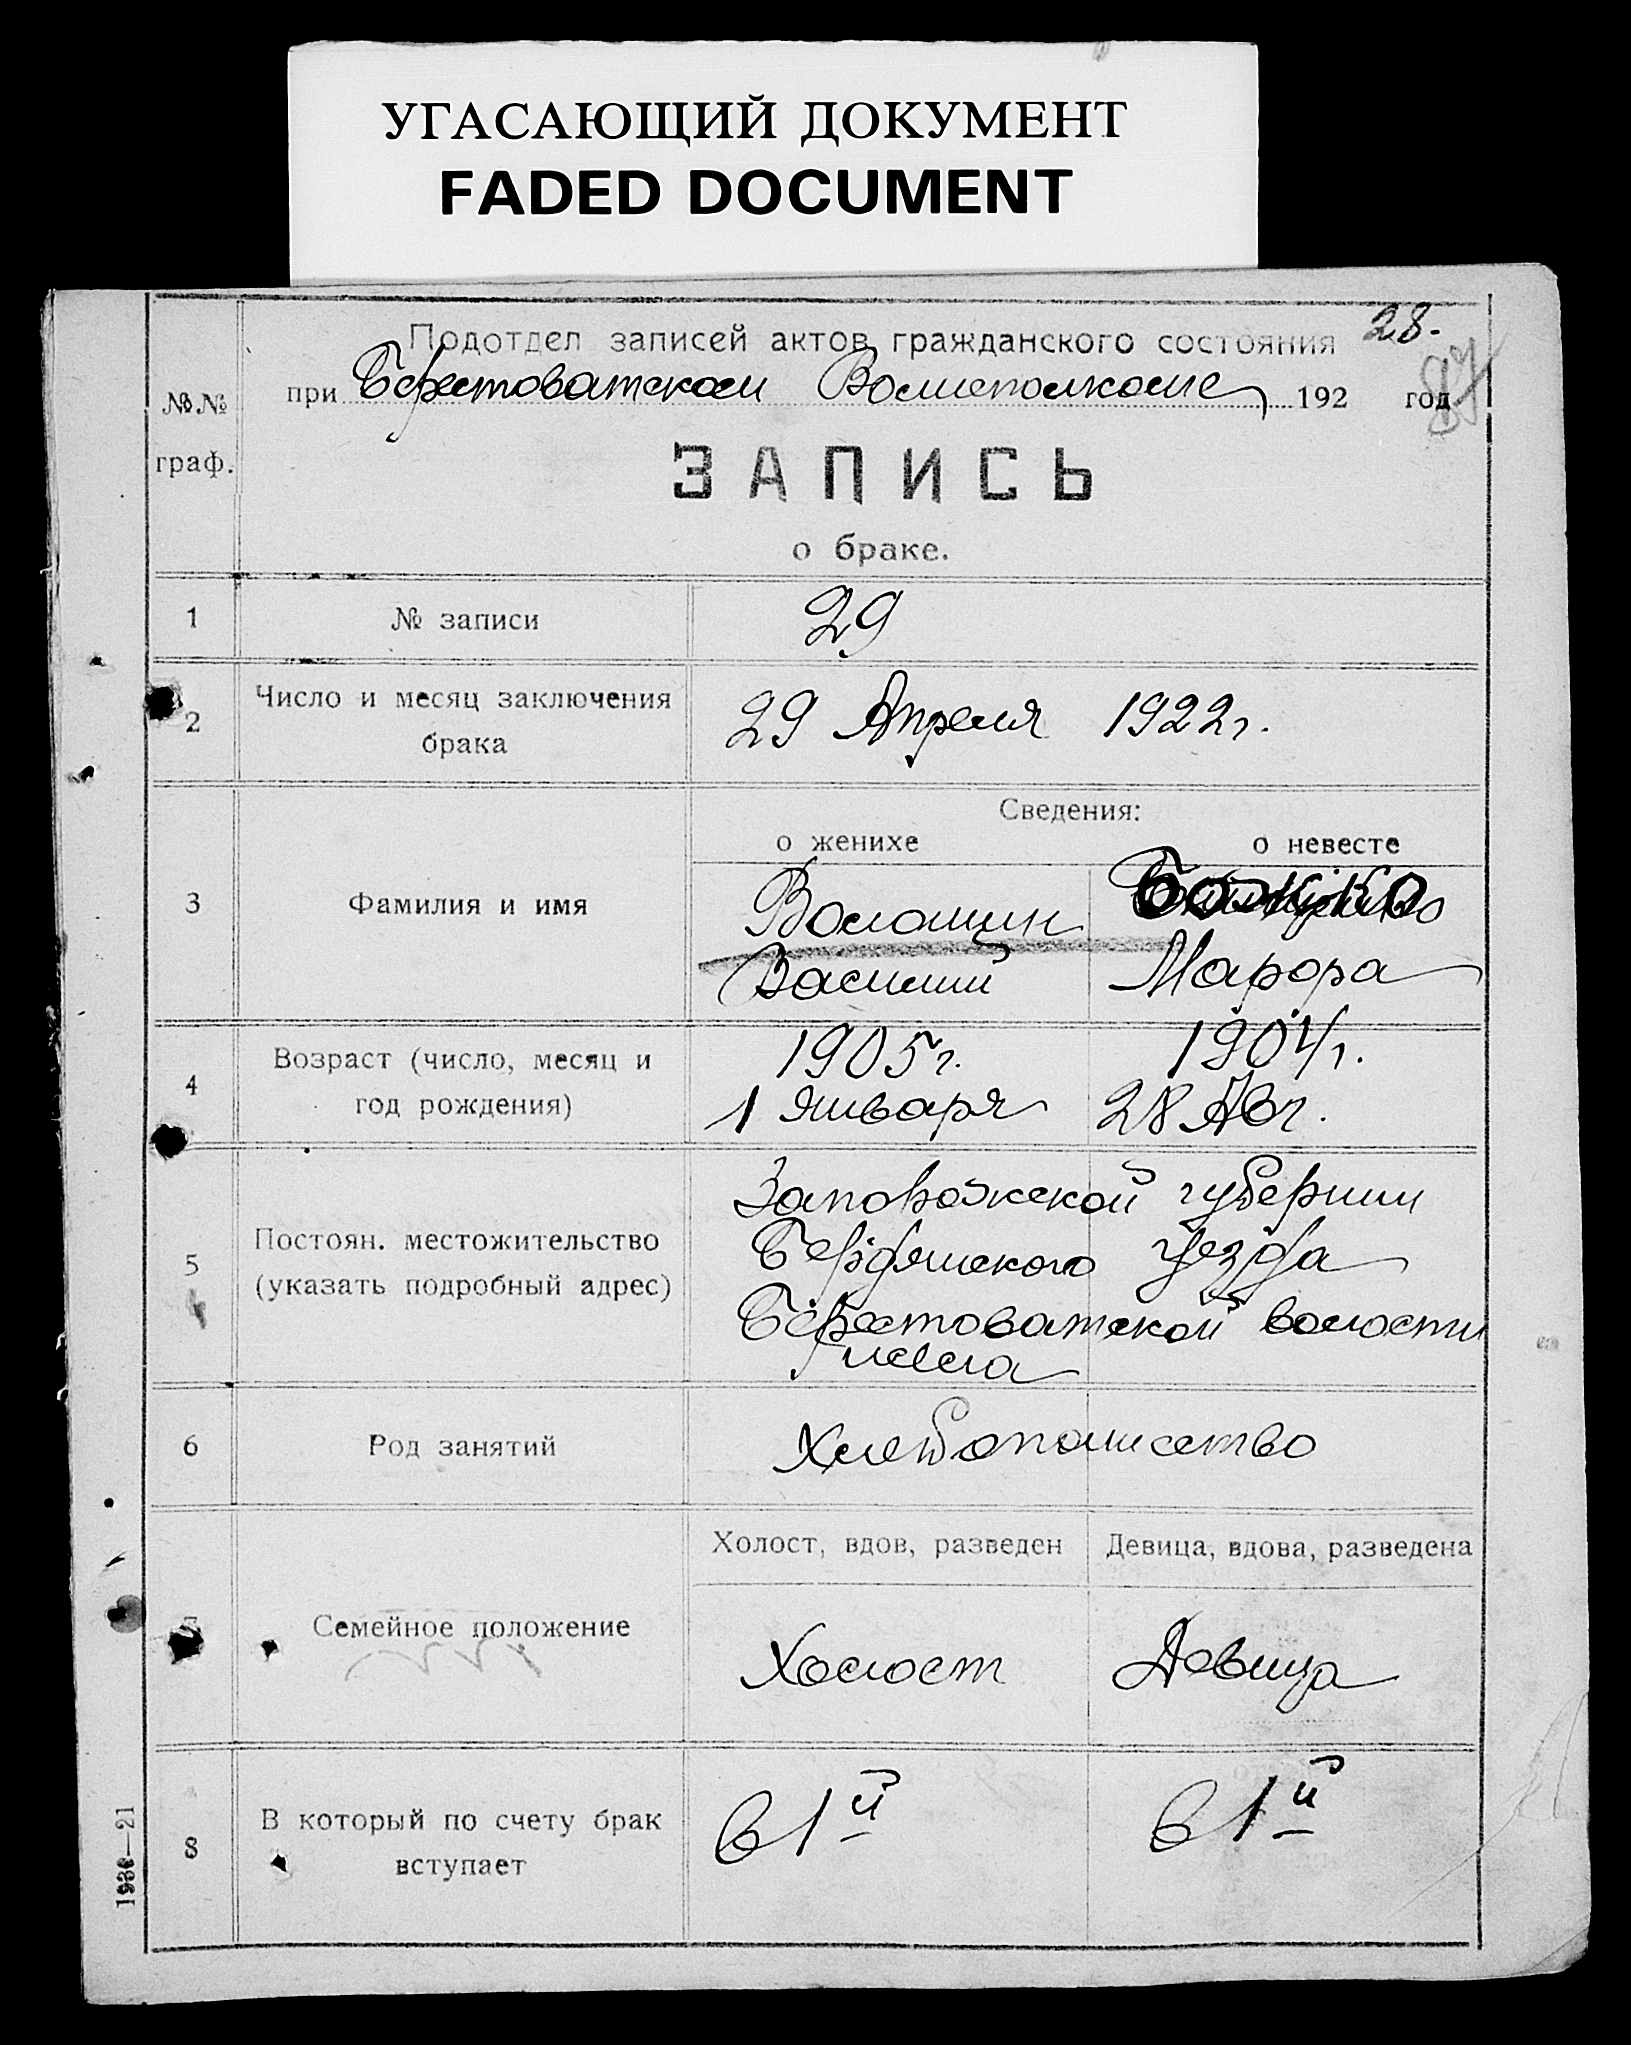 УГАСАЮЩИЙ ДОКУМЕНТ
FADED DOCUMENT
28.
Подотдел записей актов гражданского состояния
при Берестоватском Волисполкоме 192 год
№№
граф.
ЗАПИСЬ
о браке.
1 № записи 29
2 Число и месяц заключения брака 29 Апреля 1922 г.
Сведения:
о женихе о невесте
3 Фамилия и имя
Волошин Божко
Василий Марфа
4 Возраст (число, месяц и год рождения)
1905 г. 1904 г.
1 Января 28 Авг.
5 Постоян. местожительство (указать подробный адрес)
Запорожской губернии
Бердянского Уезда
Берестоватской волости
и села
6 Род занятий Хлебопашество
Холост, вдов, разведен Девица, вдова, разведена
7 Семейное положение
Холост Девица
8 В который по счету брак вступает
в 1й в 1й